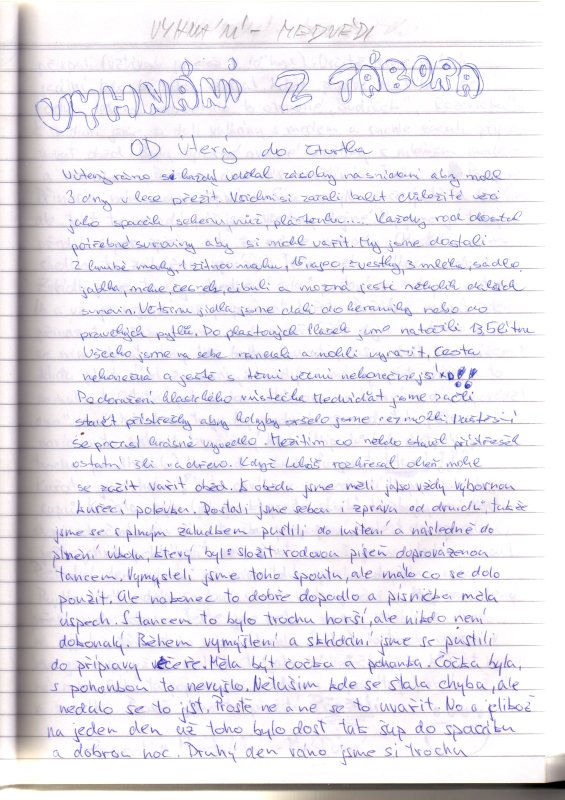 VYHNÁNÍ - MEDVĚDI
VYHNÁNÍ Z TÁBORA
OD úterý do čtvrtka
V úterý ráno si každý udělal zásoby na snídani aby mohl
3 dny v lese přežít. Všichni si začali balit důležité věci
jako spacák, celtu, nůž, pláštěnku.... Každý rod dostal
potřebné suroviny aby si mohl vařit. My jsme dostali
2 hrubé mouky, 1 žitnou mouku, 15 vajec, švestky, 3 mléka, sádlo,
jablka, mrkve, česnek, cibuli a možná ještě několik dalších
surovin. Většinu jídla jsme dali do keramiky nebo do
pravěkých pytlů. Do plastových flašek jsme natočili 13,5 litru
Všecko jsme na sebe naházeli a mohli vyrazit. Cesta
nekonečná a ještě s těmi věcmi nekonečnější xD!!
Po doražení klasického místečka Medvíďat jsme začli
stavět přístřešky aby kdyby pršelo jsme nezmokli. Naštěstí
se počasí krásně vyvedlo. Mezitím co někdo stavěl přístřešek
ostatní šli na dřevo. Když Lukáš rozkřesal oheň mohl
se začít vařit oběd. K obědu jsme měli jako vždy výbornou
kuřecí polévku. Dostali jsme sebou i zprávu od druidů, takže
jsme se s plným žaludbem pustili do luštění a následně do
plnění úkolu, který byl: složit rodovou píseň doprovázenou
tancem. Vymysleli jsme toho spoutu, ale málo co se dalo
použít. Ale nakonec to dobře dopadlo a písnička měla
úspěch. S tancem to bylo trochu horší, ale nikdo není
dokonalý. Během vymýšlení a skládání jsme se pustili
do přípravy večeře. Měla být čočka a pohanka. Čočka byla,
s pohankou to nevyšlo. Netušim kde se stala chyba, ale
nedalo se to jíst. Prostě ne a ne se to uvařit. No a jelikož
na jeden den už toho bylo dost tak šup do spacáku
a dobrou noc. Druhý den ráno jsme si trochu